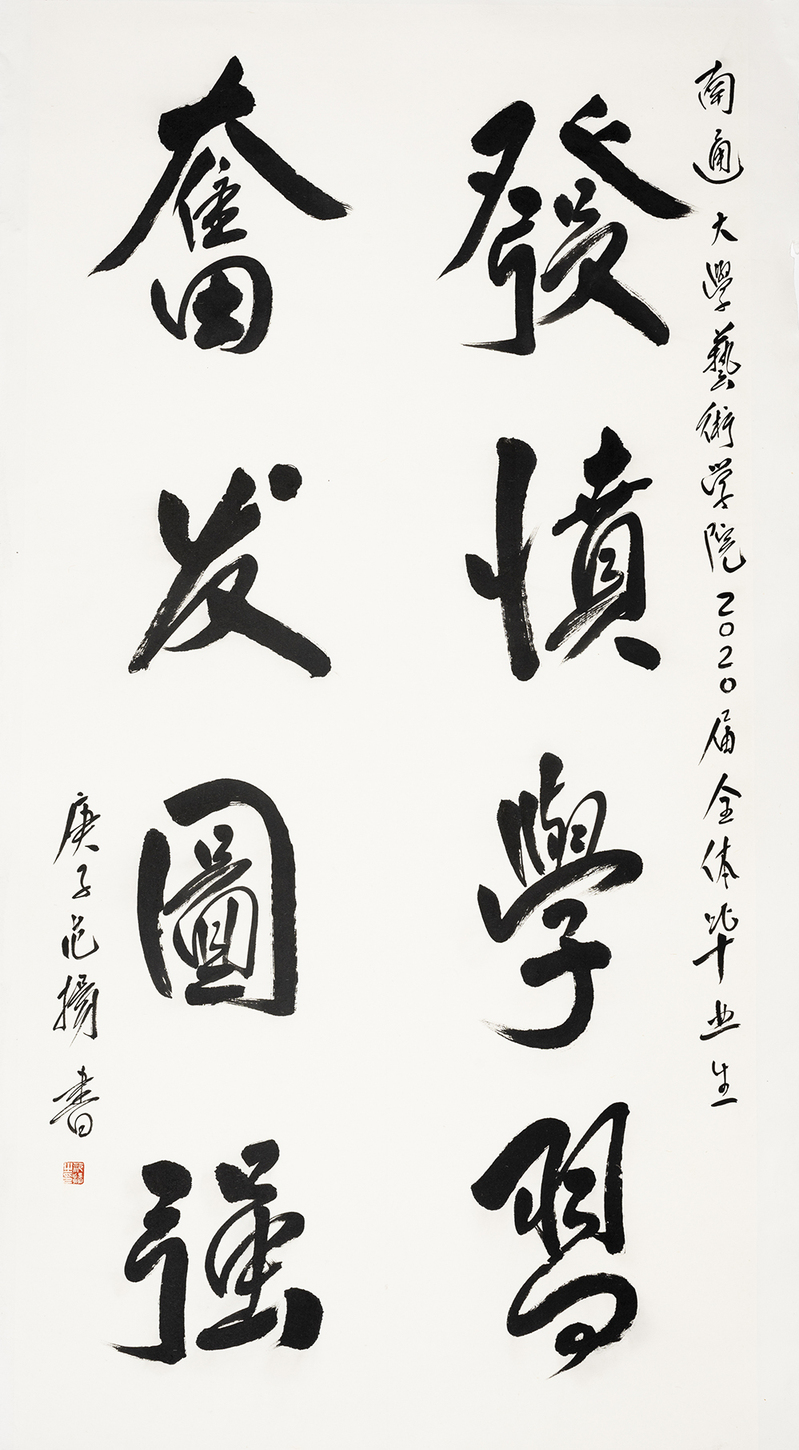 南通大學藝術学院2020届全体毕业生
發憤學習
奮发圖强
庚子范揚書